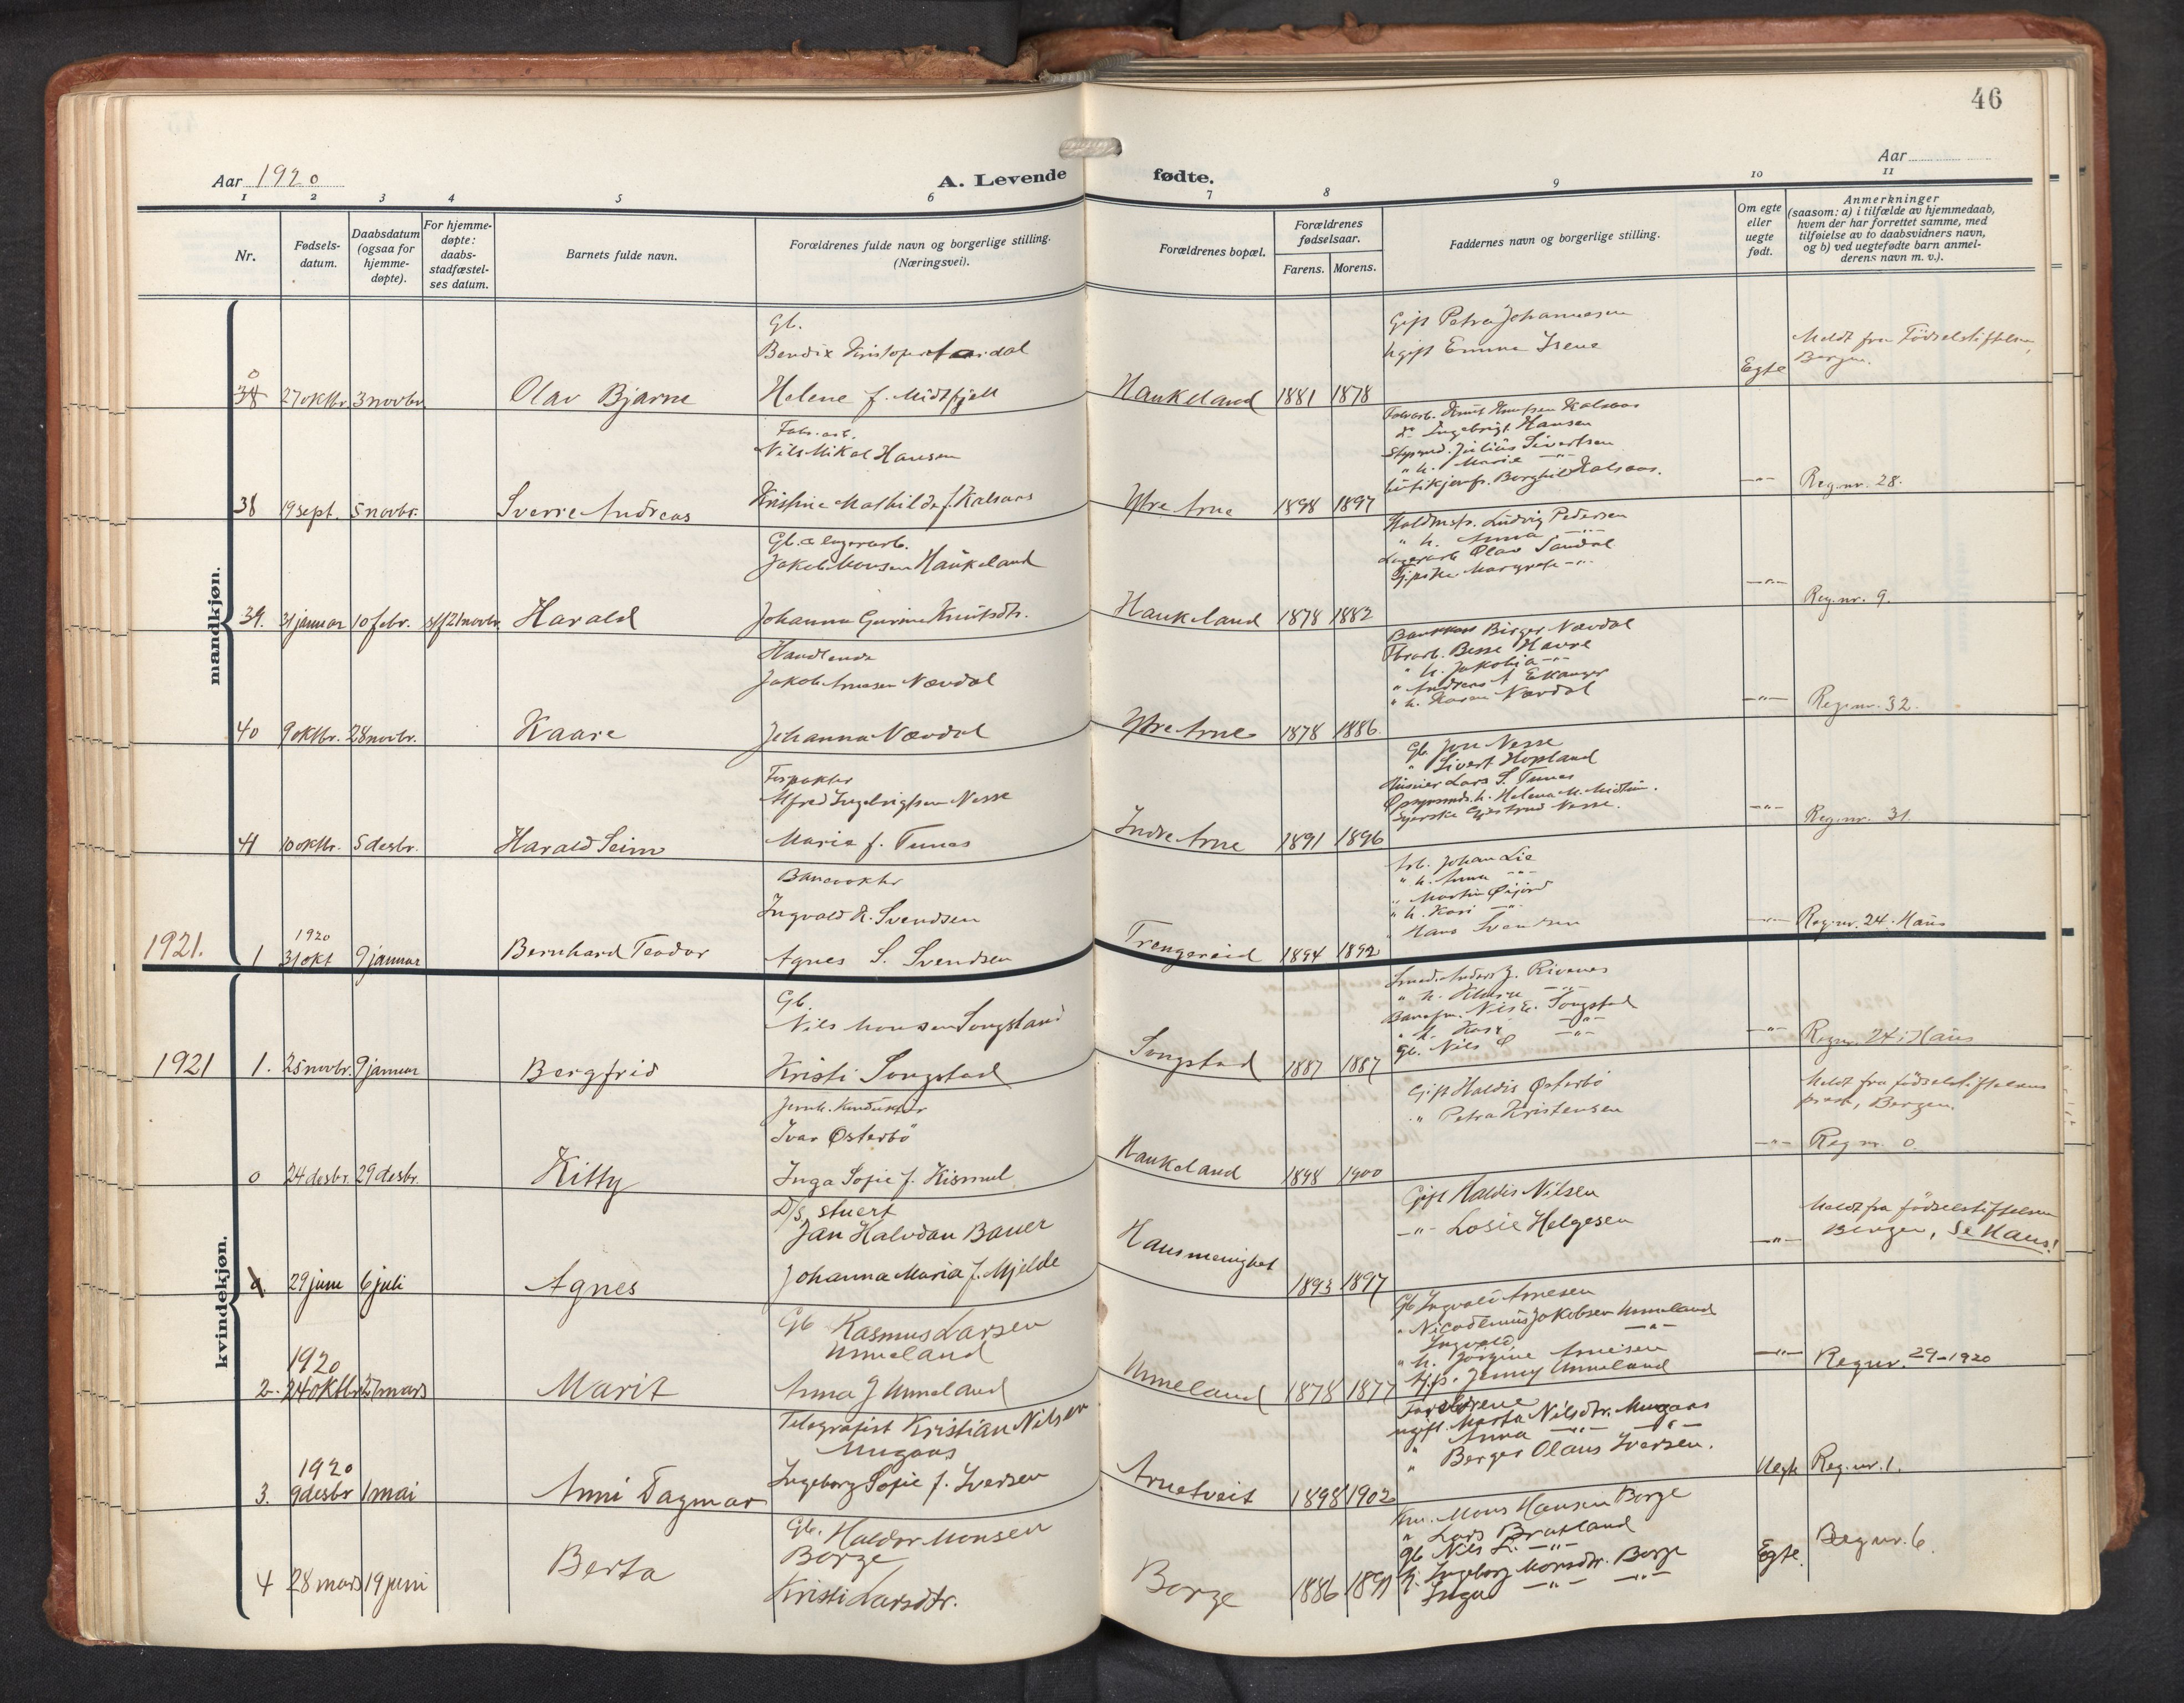 46
Aar 1920
A. Levende fødte.
Aar
1 2 3 4 5 6 7 8 9 10 11
Nr.
Fødsels-
datum.
Daabsdatum
(ogsaa for
hjemme-
døpte).
For hjemme-
døpte:
daabs-
stadfæstel-
ses datum.
Barnets fulde navn.
Forældrenes fulde navn og borgerlige stilling.
(Næringsvei).
Forældrenes bopæl.
Forældrenes
fødselsaar.
Farens. Morens.
Faddernes navn og borgerlige stilling.
Om egte
eller
uegte
født.
Anmerkninger
(saasom: a) i tilfælde av hjemmedaab,
hvem der har forrettet samme, med
tilføielse av to daabsvidners navn,
og b) ved uegtefødte barn anmel-
derens navn m. v.).
mandkjøn.
0
38 27 oktbr. 3 novbr. Olav Bjarne
Gb.
Bendix
Helene f. Midtfjell
Haukeland 1881 1878
Gift Petra Johannesen
Ugift Emma Irene
Egte
Meldt fra Födselstiftelsen,
Bergen.
38 19 sept. 5 novbr. Sverre Andreas
Fabr. arb.
Nils Mikal Hansen
Kristine Mathilde f. Kalsaas
Ytre Arne 1898 1897
Fabrarb. Knut Knutsen Kalsaas
do Ingebrigt Hansen
Julius Sivertsen
" h. Marie —"—
Borghild Kalsaas.
—"— Reg. nr. 28.
39. 31 januar 10 febr. s/f 21 novbr. Harald
Gb. & lagerarb.
Jakob Monsen Haukeland
Johanna Gurine Knutsdtr.
Haukeland 1878 1882
Ludvig Pedersen
" h. Anna —"—
Lagerarb. Olav Sandal
Margrete —"—
—"— Reg. nr. 9.
40 9 oktbr. 28 novbr. Kaare
Handlende
Jakob Arnesen Nævdal
Johanna Nævdal
Ytre Arne 1878 1886.
Birger Nævdal
Fbrarb. Besse Havre
" h. Jakobia —"—
" Andreas A Ekanger
" h. Karen Nævdal
—"— Reg. nr. 32.
41 10 oktbr. 5 desbr. Harald Seim
Forpakter
Alfred Ingebrigtsen Nesse
Maria f. Tunes
Indre Arne 1891 1896
Gb. Jon Nesse
" Sivert Hopland
Lars S. Tunes
h. Helena M. Midttun.
Nesse.
—"— Reg. nr. 31.
1921. 1 1920
31 okt 9 januar Bernhard Teodor
Banevokter
Ingvald K. Svendsen
Agnes S. Svendsen
Trengereid 1894 1892
Arb. Johan Lie
" h. Anna —"—
" Martin Øijord
" h. Kari —"—
Hans Svendsen
—"— Reg. nr. 24. Haus
kvindekjøn.
1921 1. 25 novbr. 9 januar Bergfrid
Gb.
Nils Monsen Songstad
Kristi Songstad
Songstad 1887 1887
Smed. Anders J. Rivenes
" h.
Nils E. Songstad
" h. Kari —"—
Gb. Nils S —"—
—"— Reg nr. 24 i Haus
0 24 desbr. 29 desbr. Kitty
Jernb. Konduktør
Ivar Østerbö
Inga Sofie f. Kismul
Haukeland 1898 1900
Gift Haldis Østerbö
" Petra Kristensen
Meldt fra födselstiftelsens
prest, Bergen.
—"— Reg nr. 0.
29 juni 6 juli Agnes
D/s, stuert
Jan Halvdan Bauer
Johanna Maria f. Mjelde
Hausmenighet 1893 1897
Gift Haldis Nilsen
—"— Losie Helgesen
—"— Meldt fra födselstiftelsen
Bergen, Se Haus!
2. 1920
24 oktbr 27 mars Marit
Gb Rasmus Larsen
Unneland
Anna J Unneland
Unneland 1878 1877
Gb Ingvald Arnesen
" Nicodemus Jakobsen Unneland
" Ingvald —"—
" h. Jörgine Arnesen
Jenny Unneland
—"— Reg nr. 29-1920
3. 1920
9 desbr 1 mai Anni Dagmar
Telegrafist Kristian Nilsen
Mugaas
Ingeborg Sofie f. Iversen
Arnetveit 1898 1902
Foreldrene
ugift. Marta Nilsdtr. Mugaas
" Anna —"— —"—
" Berger Olaus Iversen.
Uegte Reg. nr. 1.
4 28 mars 19 juni Berta
Gb. Haldor Monsen
Borge
Kristi Larsdtr.
Borge 1886 1891
Mons Hansen Borge
" Lars Brakland
Gb Nils L. —"—
h. Ingeborg Monsdtr. Borge
Inga —"— —"—
Egte. Reg nr. 6.